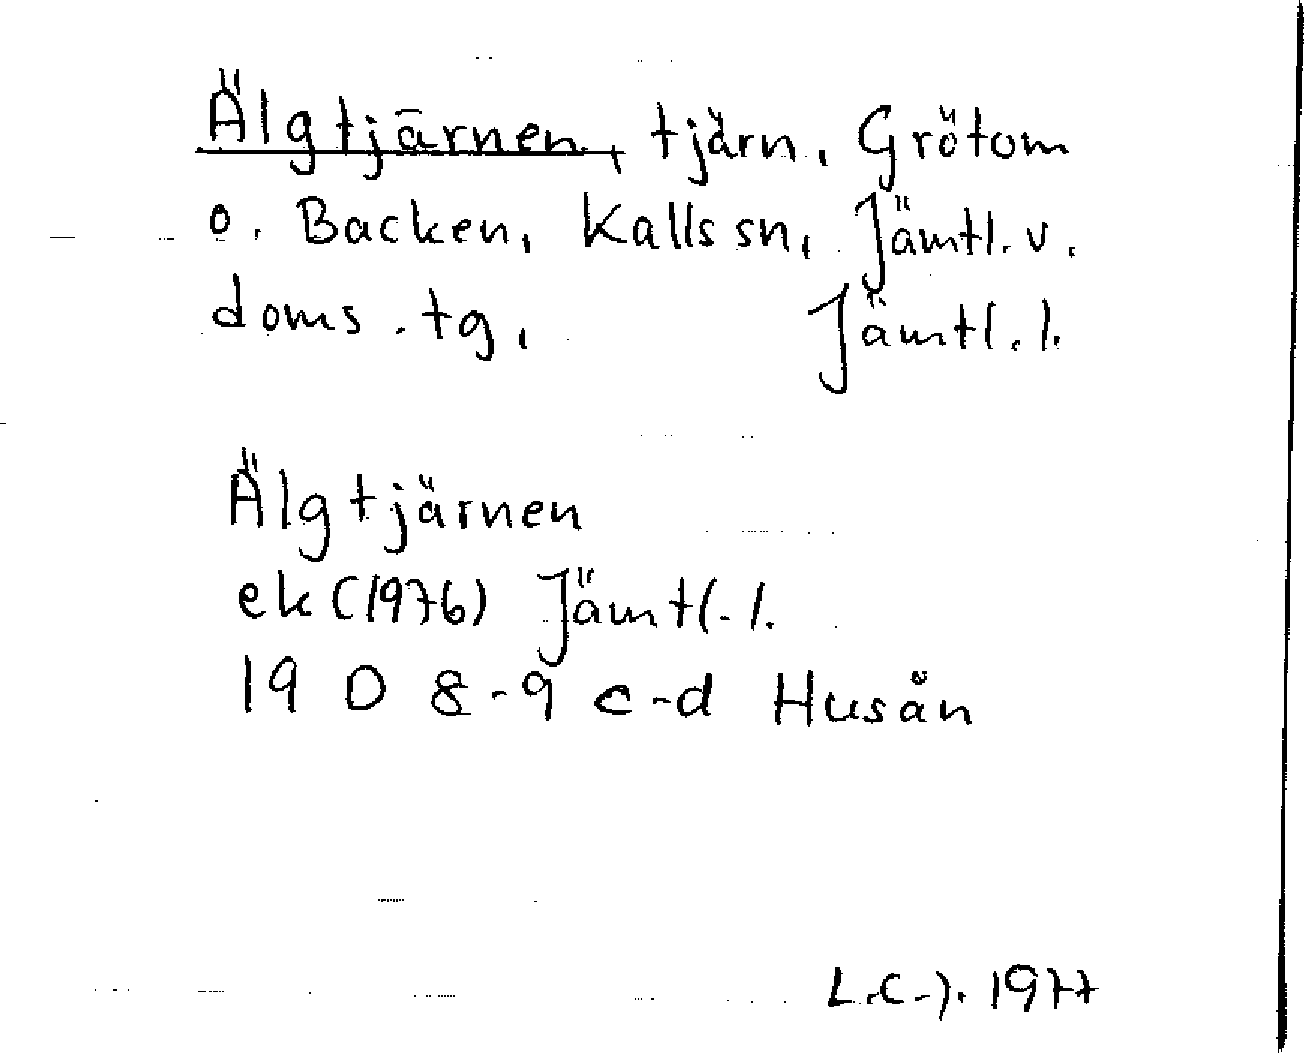 Älgtjärnen, tjärn, Grötom
o. Backen, Kalls sn, Jämtl. v.
doms. tg, Jämtl. l.
Älgtjärnen
ek (1976) Jämtl. l.
19 D 8-9 c-d Husån
L.C-J. 1977